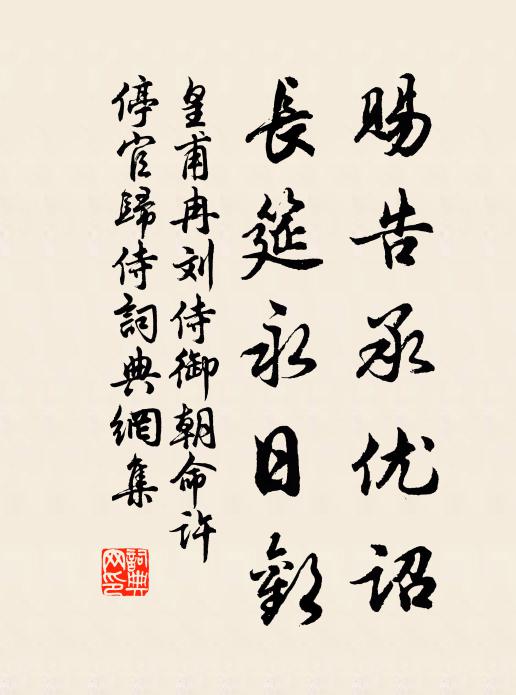 賜告承优詔
長筵永日歡
皇甫冉刘侍御朝命許
停官歸侍詞典網集
詞典網印